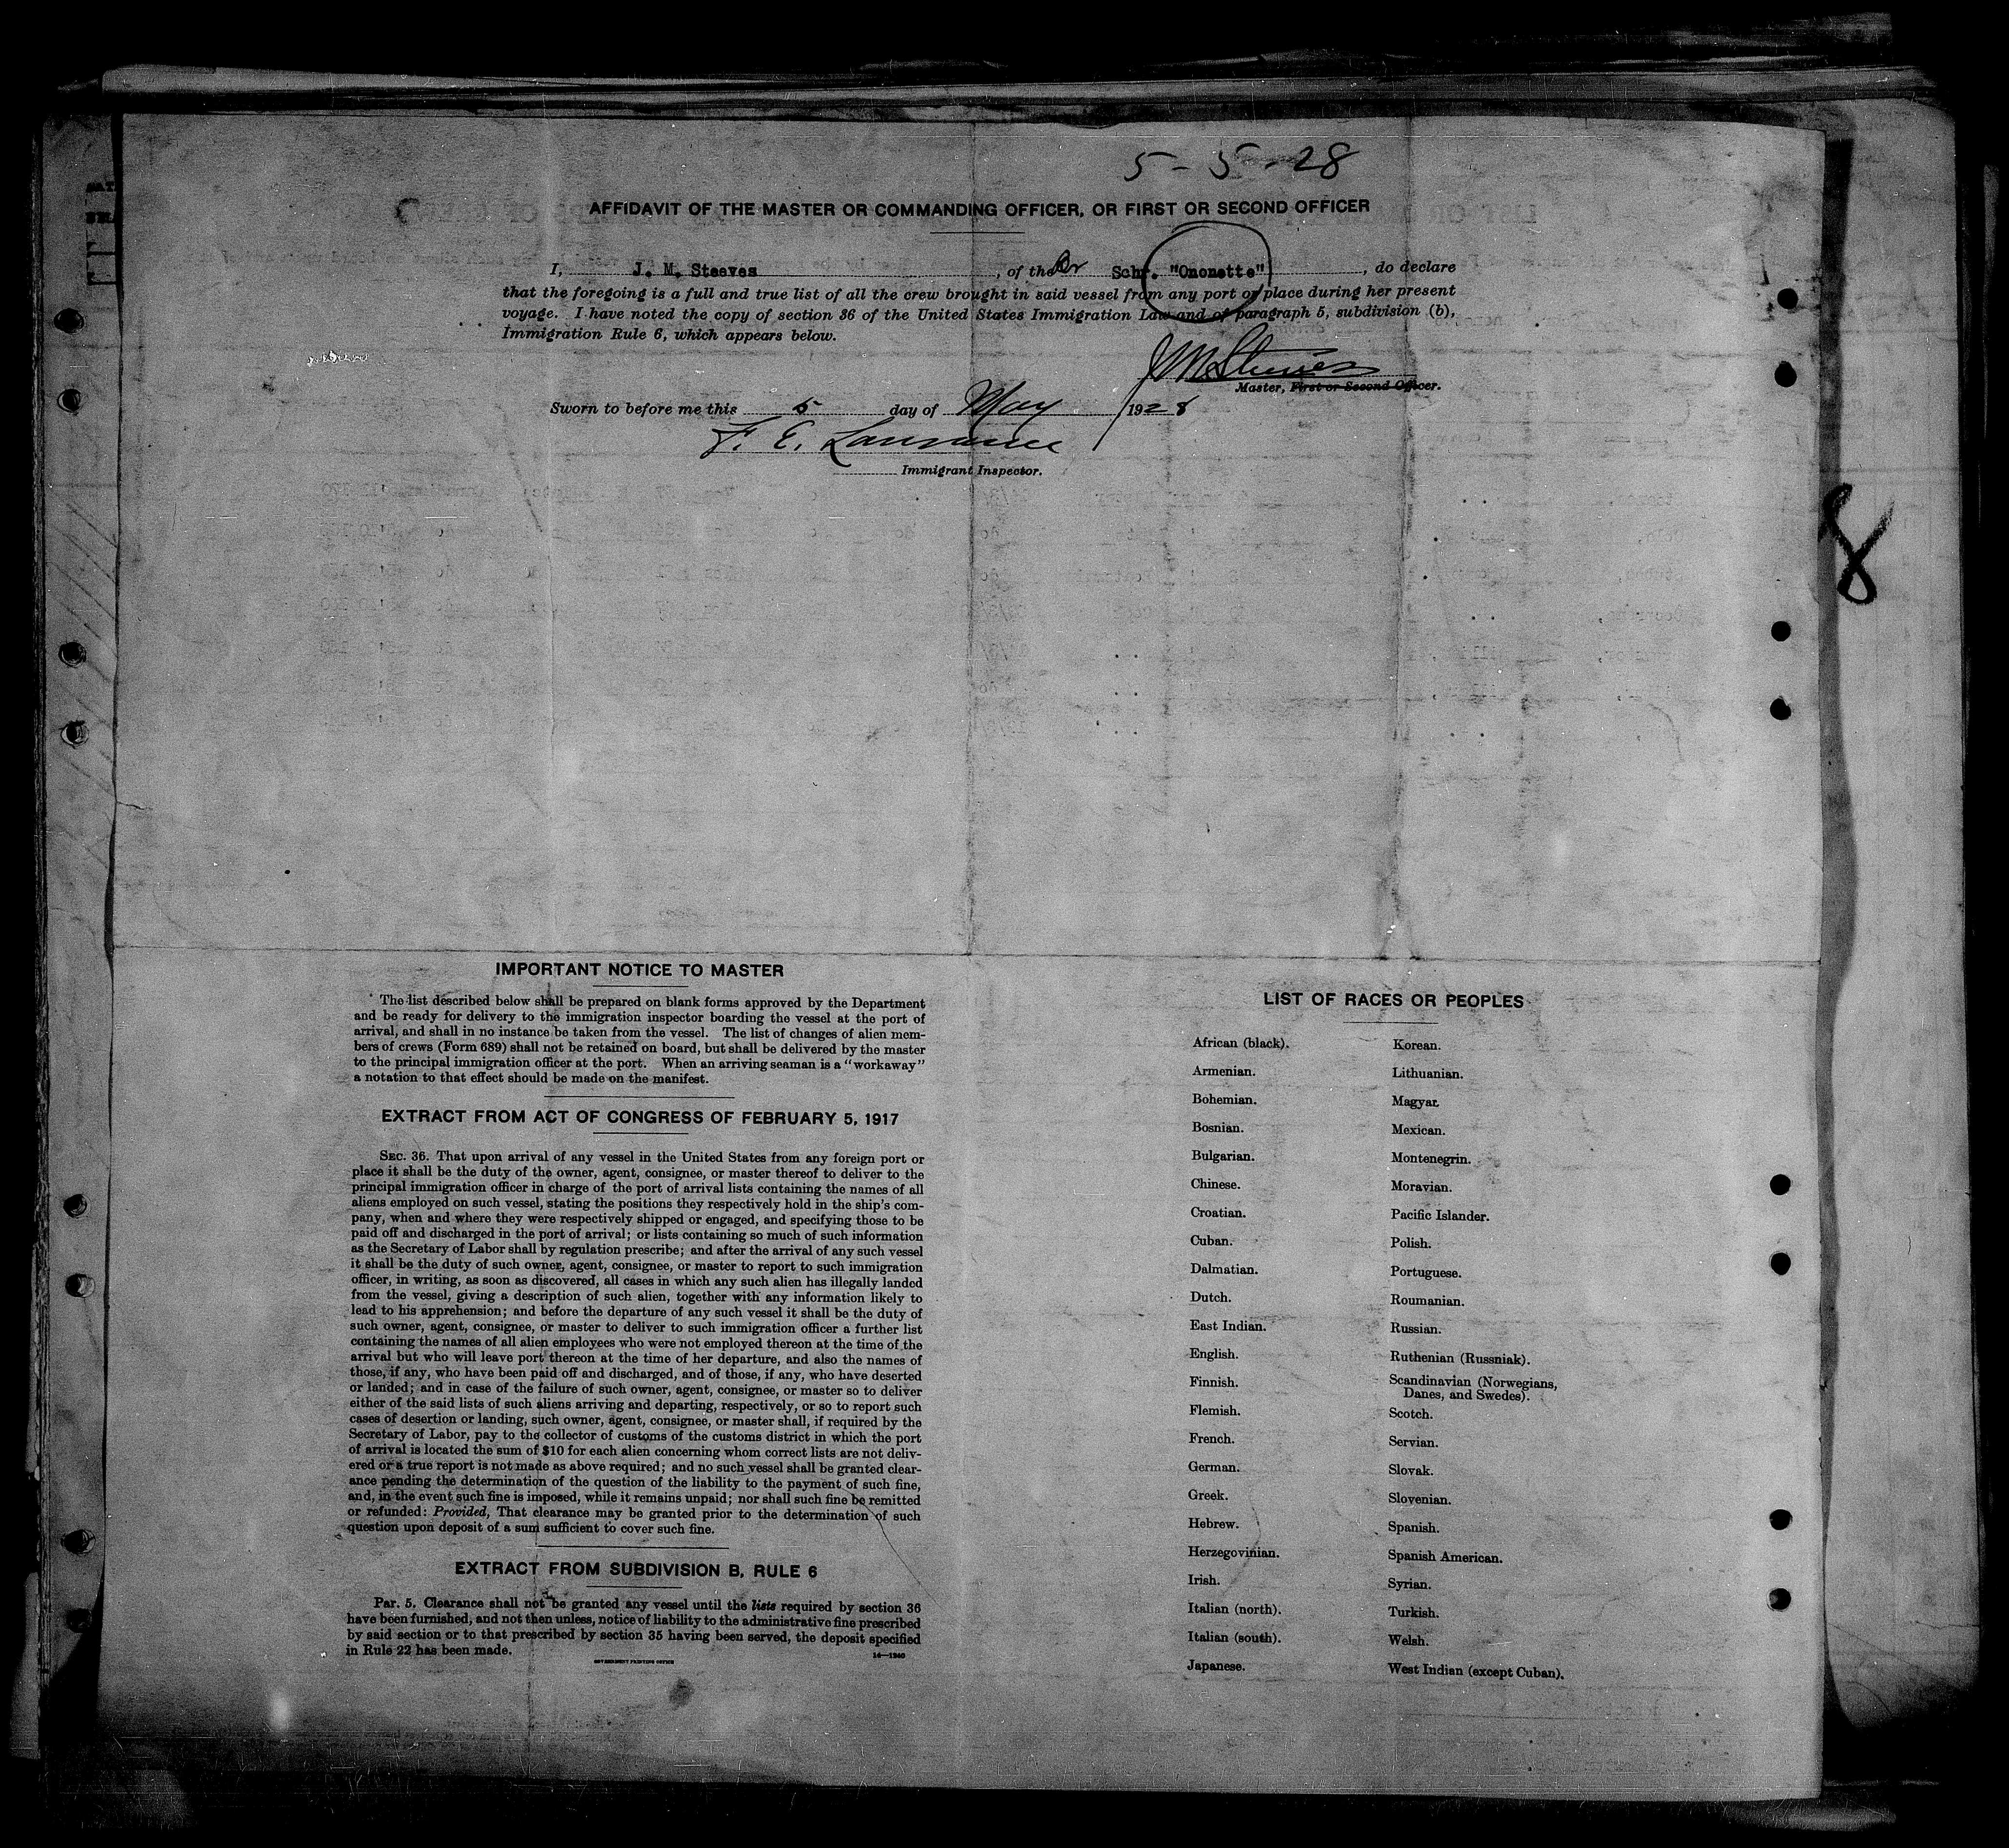 5-5-28
AFFIDAVIT OF THE MASTER OR COMMANDING OFFICER, OR FIRST OR SECOND OFFICER
I, J. M. Steeves, of the Br Schr. "Ononette", do declare
that the foregoing is a full and true list of all the crew brought in said vessel from any port or place during her present
voyage. I have noted the copy of section 36 of the United States Immigration Law and of paragraph 5, subdivision (b),
Immigration Rule 6, which appears below.
J M Steeves
Master, First or Second Officer.
Sworn to before me this 5 day of May 1928
F. E. Lawrance
Immigrant Inspector.
8
IMPORTANT NOTICE TO MASTER
The list described below shall be prepared on blank forms approved by the Department
and be ready for delivery to the immigration inspector boarding the vessel at the port of
arrival, and shall in no instance be taken from the vessel. The list of changes of alien mem-
bers of crews (Form 689) shall not be retained on board, but shall be delivered by the master
to the principal immigration officer at the port. When an arriving seaman is a "workaway"
a notation to that effect should be made on the manifest.
EXTRACT FROM ACT OF CONGRESS OF FEBRUARY 5, 1917
SEC. 36. That upon arrival of any vessel in the United States from any foreign port or
place it shall be the duty of the owner, agent, consignee, or master thereof to deliver to the
principal immigration officer in charge of the port of arrival lists containing the names of all
aliens employed on such vessel, stating the positions they respectively hold in the ship's com-
pany, when and where they were respectively shipped or engaged, and specifying those to be
paid off and discharged in the port of arrival; or lists containing so much of such information
as the Secretary of Labor shall by regulation prescribe; and after the arrival of any such vessel
it shall be the duty of such owner, agent, consignee, or master to report to such immigration
officer, in writing, as soon as discovered, all cases in which any such alien has illegally landed
from the vessel, giving a description of such alien, together with any information likely to
lead to his apprehension; and before the departure of any such vessel it shall be the duty of
such owner, agent, consignee, or master to deliver to such immigration officer a further list
containing the names of all alien employees who were not employed thereon at the time of the
arrival but who will leave port thereon at the time of her departure, and also the names of
those, if any, who have been paid off and discharged, and of those, if any, who have deserted
or landed; and in case of the failure of such owner, agent, consignee, or master so to deliver
either of the said lists of such aliens arriving and departing, respectively, or so to report such
cases of desertion or landing, such owner, agent, consignee, or master shall, if required by the
Secretary of Labor, pay to the collector of customs of the customs district in which the port
of arrival is located the sum of $10 for each alien concerning whom correct lists are not deliv-
ered or a true report is not made as above required; and no such vessel shall be granted clear-
ance pending the determination of the question of the liability to the payment of such fine,
and, in the event such fine is imposed, while it remains unpaid; nor shall such fine be remitted
or refunded: Provided, That clearance may be granted prior to the determination of such
question upon deposit of a sum sufficient to cover such fine.
EXTRACT FROM SUBDIVISION B, RULE 6
Par. 5. Clearance shall not be granted any vessel until the lists required by section 36
have been furnished, and not then unless, notice of liability to the administrative fine prescribed
by said section or to that prescribed by section 35 having been served, the deposit specified
in Rule 22 has been made.
14—1240
GOVERNMENT PRINTING OFFICE
LIST OF RACES OR PEOPLES
African (black).
Armenian.
Bohemian.
Bosnian.
Bulgarian.
Chinese.
Croatian.
Cuban.
Dalmatian.
Dutch.
East Indian.
English.
Finnish.
Flemish.
French.
German.
Greek.
Hebrew.
Herzegovinian.
Irish.
Italian (north).
Italian (south).
Japanese.
Korean.
Lithuanian.
Magyar.
Mexican.
Montenegrin.
Moravian.
Pacific Islander.
Polish.
Portuguese.
Roumanian.
Russian.
Ruthenian (Russniak).
Scandinavian (Norwegians,
Danes, and Swedes).
Scotch.
Servian.
Slovak.
Slovenian.
Spanish.
Spanish American.
Syrian.
Turkish.
Welsh.
West Indian (except Cuban).